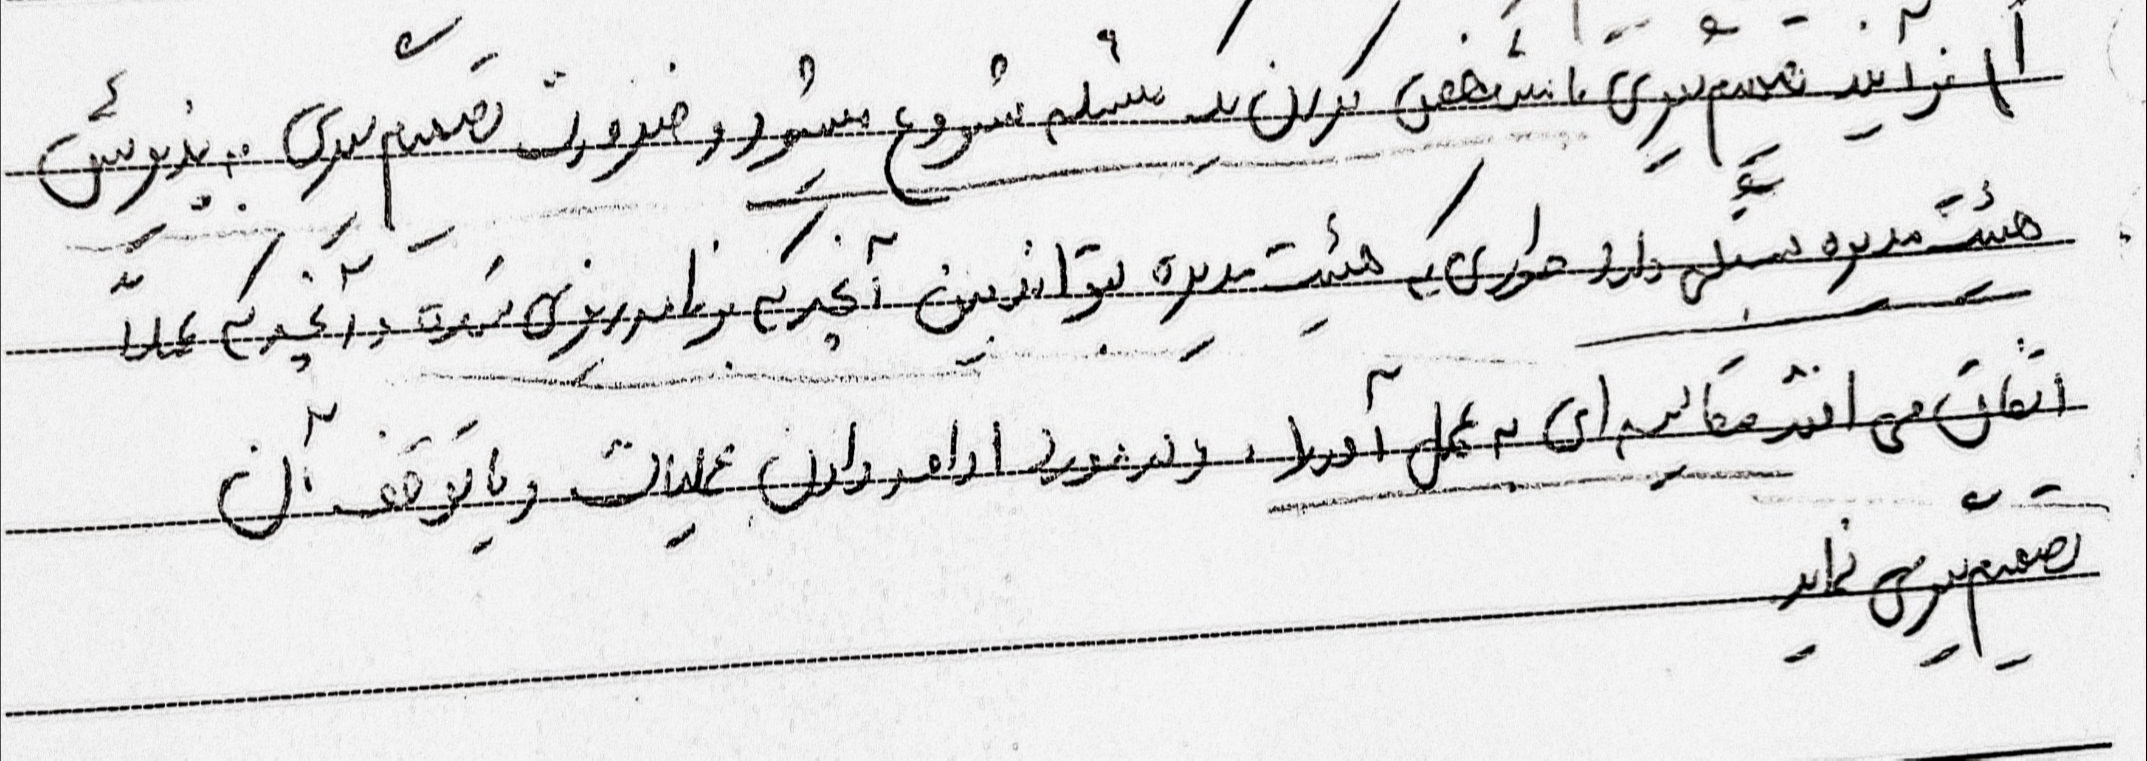 فرآیند تصمیم‌گیری با مشخص کردن یک مسئله شروع میشود و ضرورت تصمیم‌گیری به پذیرش
هیئت مدیره بستگی دارد طوری که هیئت مدیره بتواند بین آنچه که برنامه‌ریزی شده و آنچه که عملاً
اتفاق می‌افتد مقایسه‌ای به عمل آورد، و در مورد ادامه دادن عملیات و یا توقف آن
تصمیم‌گیری نماید